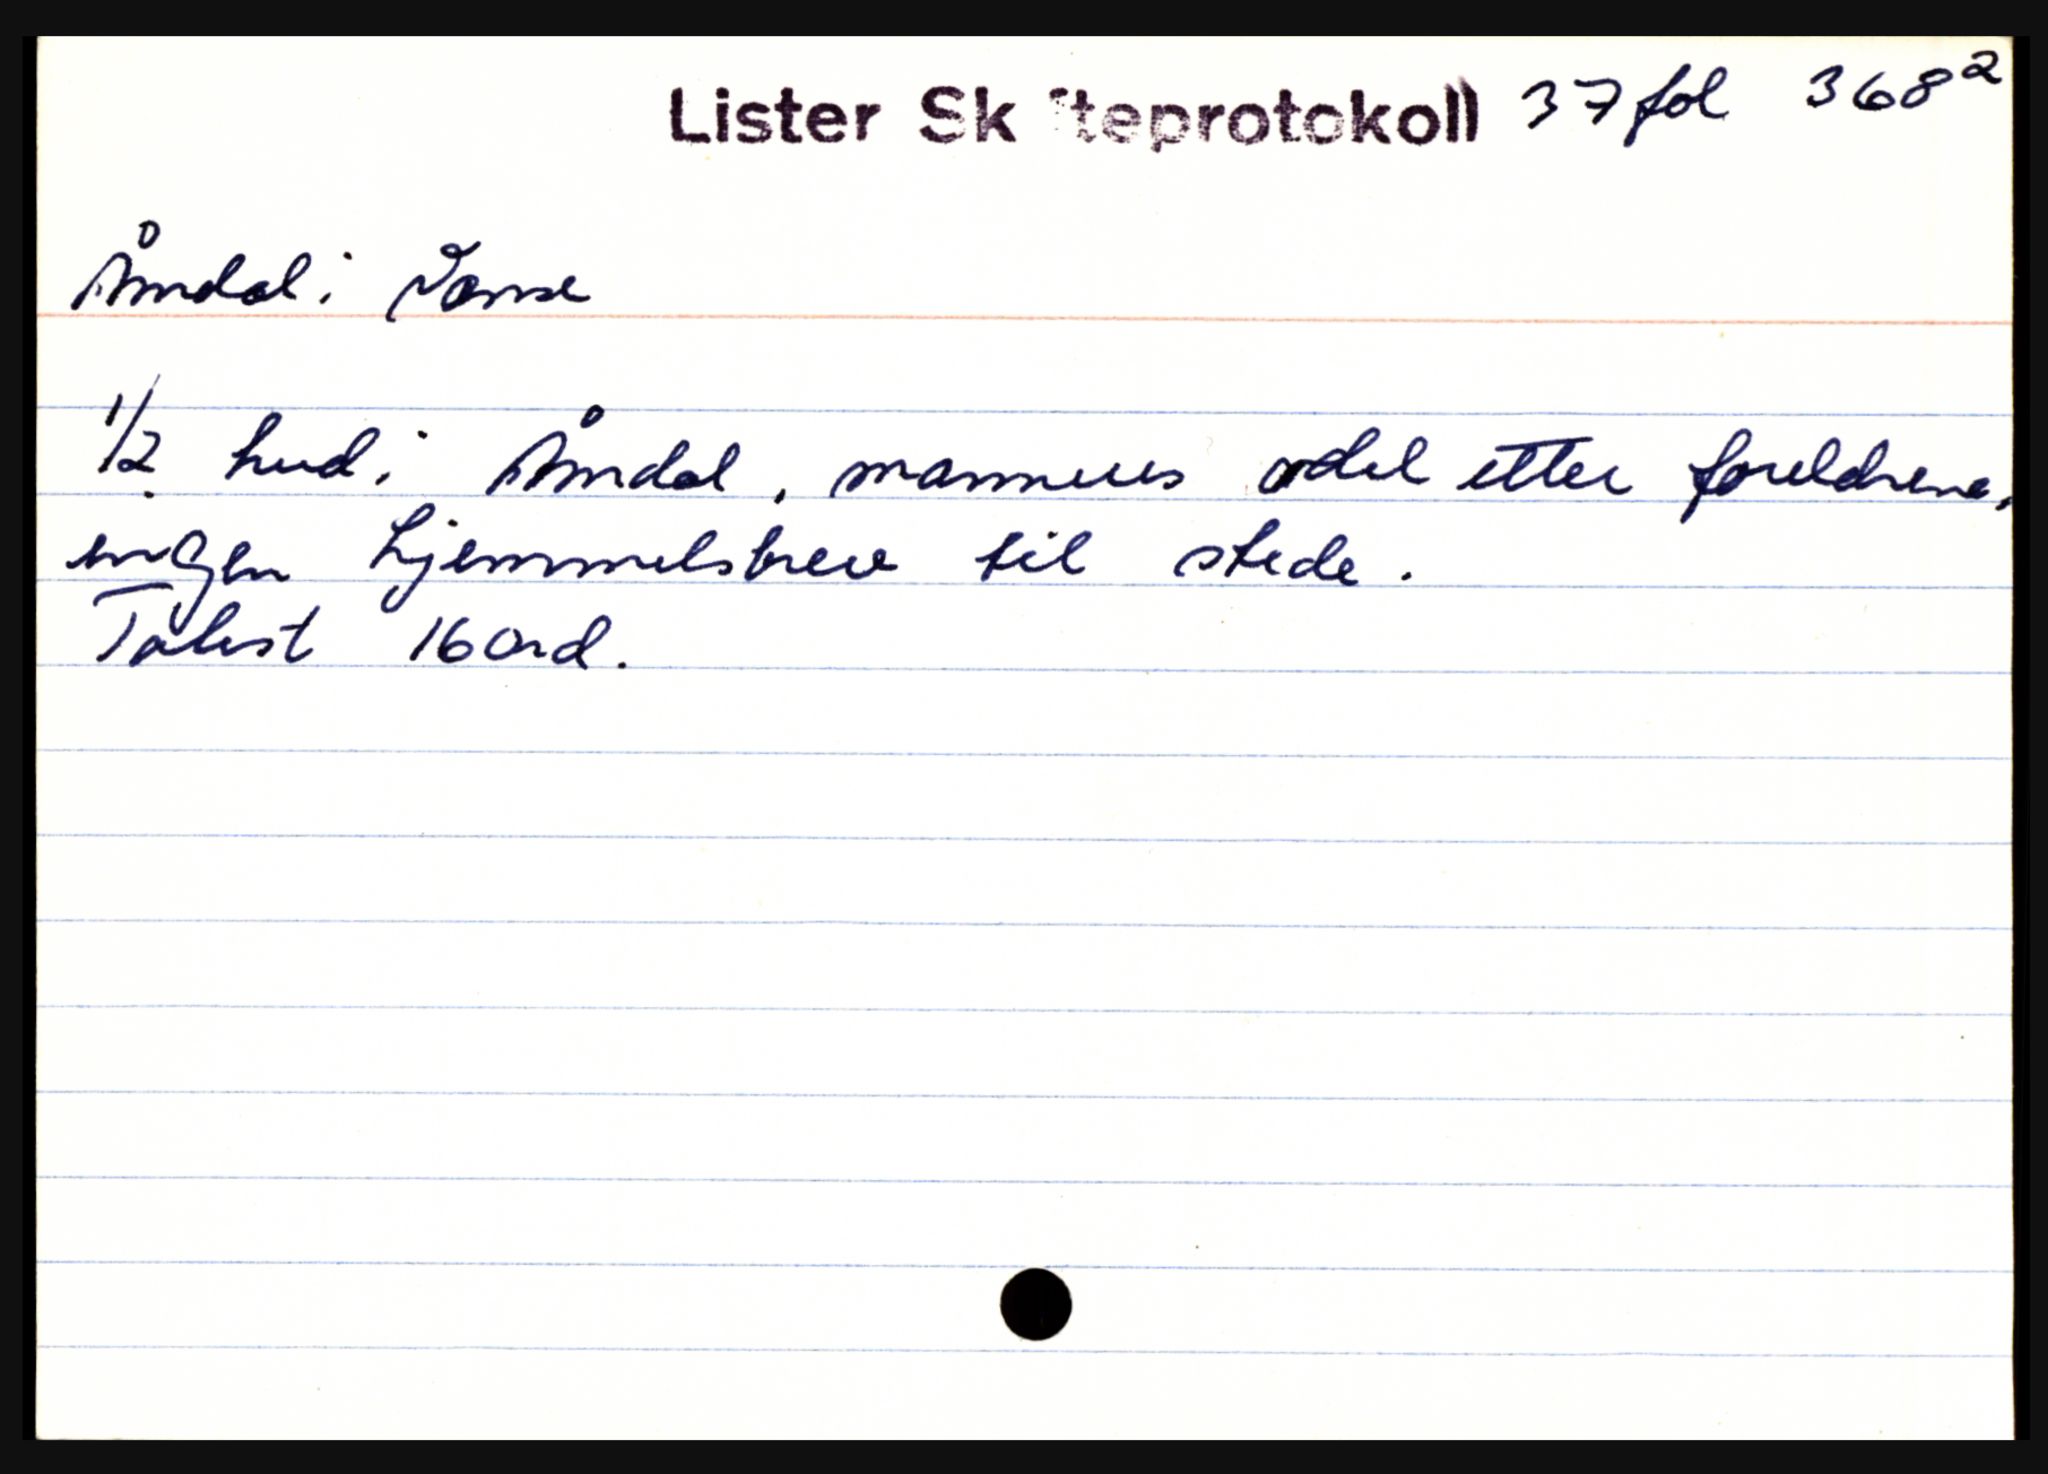 Lister Skifteprotokoll 37 fol 368²
Åmdal i Vanse
1/2 hud i Åmdal, mannens odel etter foreldrene,
ingen hjemmelsbrev til stede.
Takst 160rd.